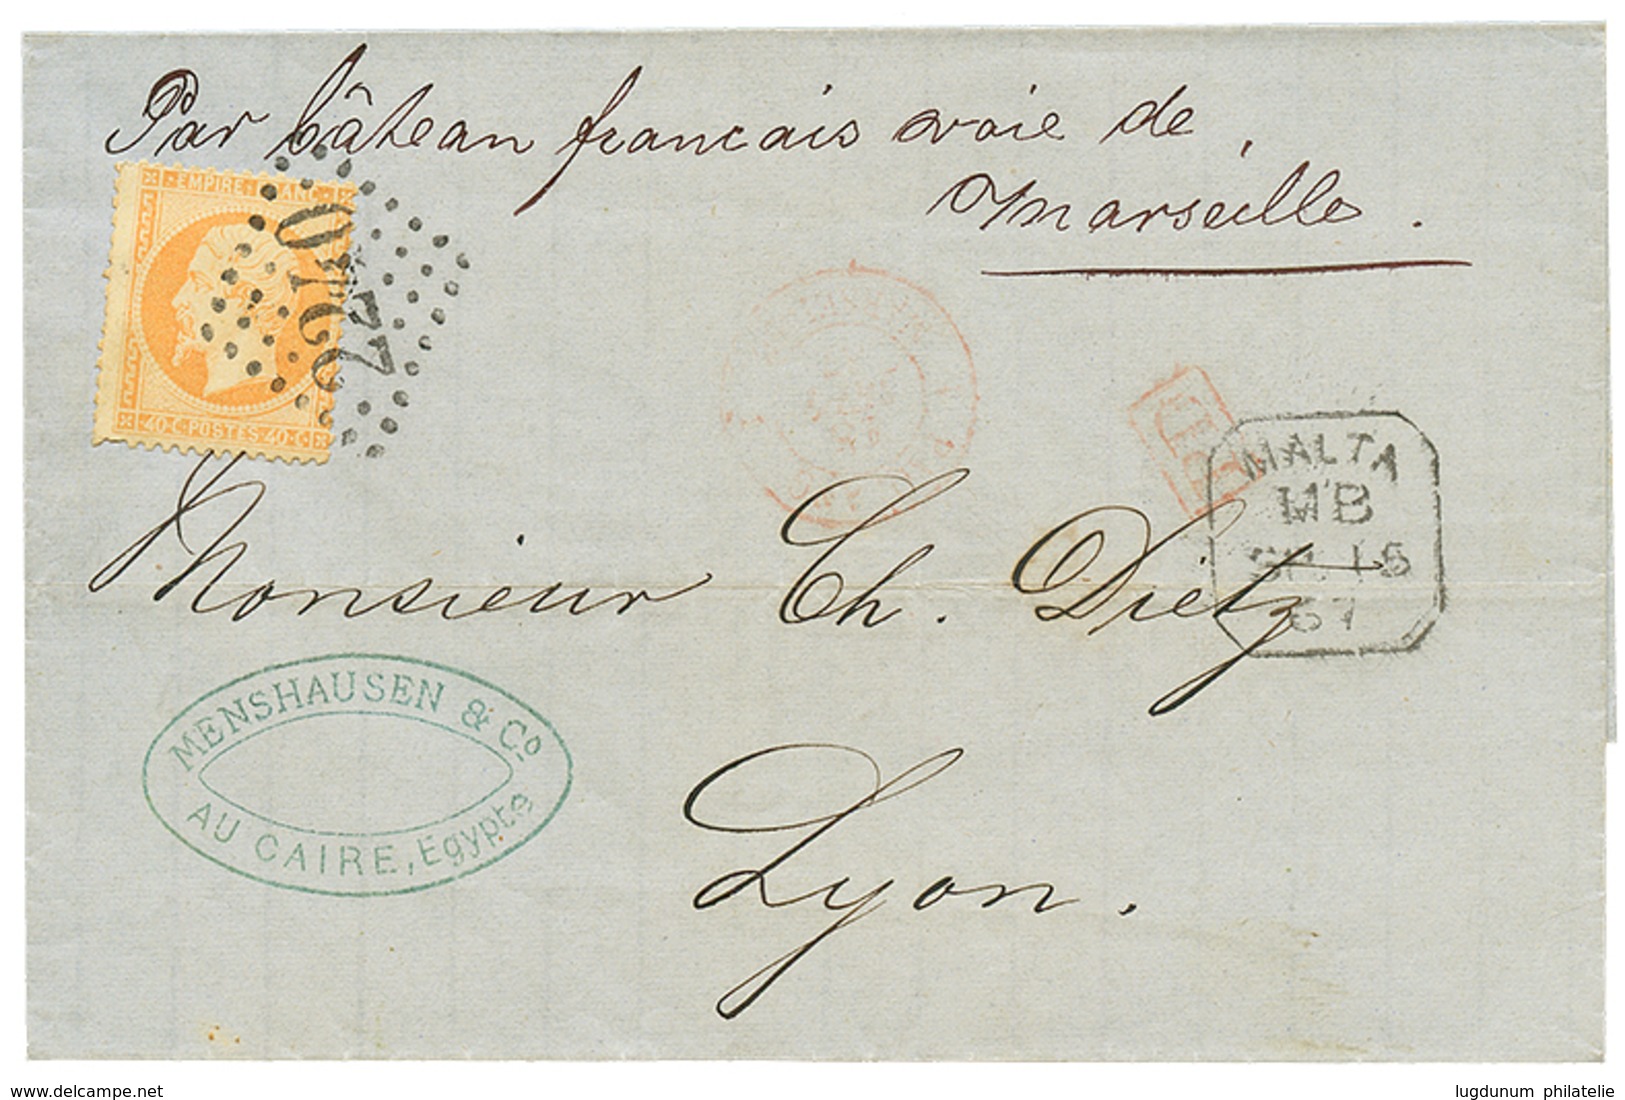 Par bâteau français voie de
Marseille.
EMPIRE FRANC
40·C·POSTES·40·C
2240
MALTA
MB
SP 15
67
Monsieur Ch. Dietz
MENSHAUSEN & Co
AU CAIRE, Egypte
Lyon.
www.delcampe.net
lugdunum philatelie